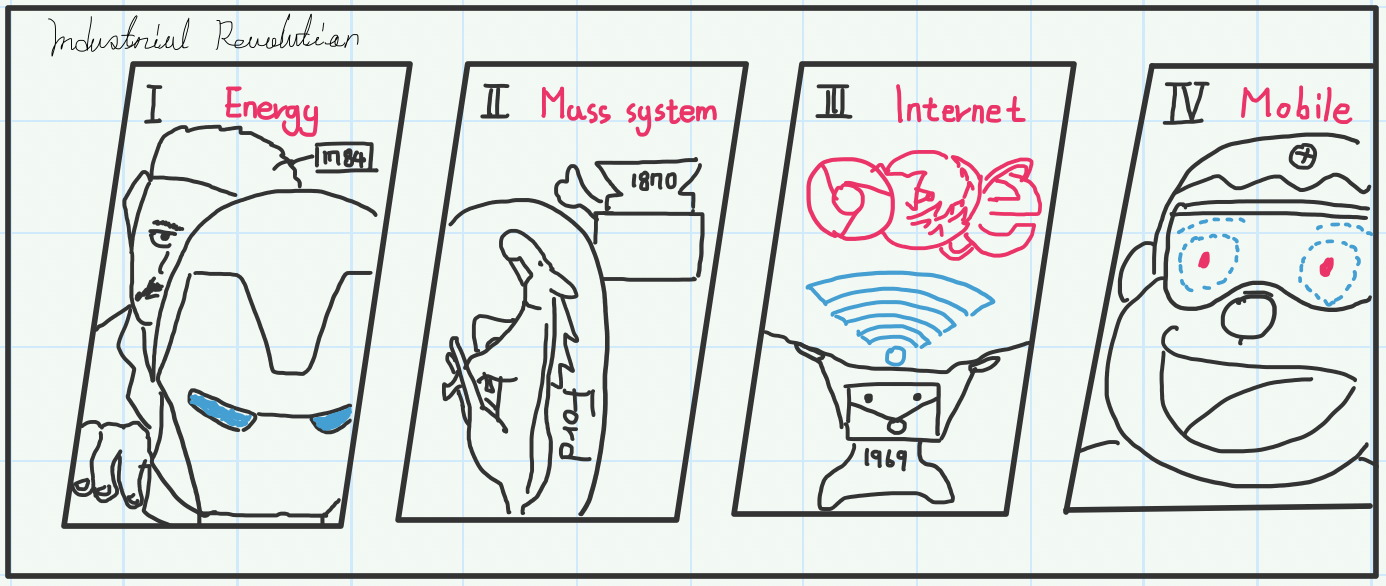 Industrial Revolution
I Energy
1784
II Mass system
1870
Prof
III Internet
1969
IV Mobile